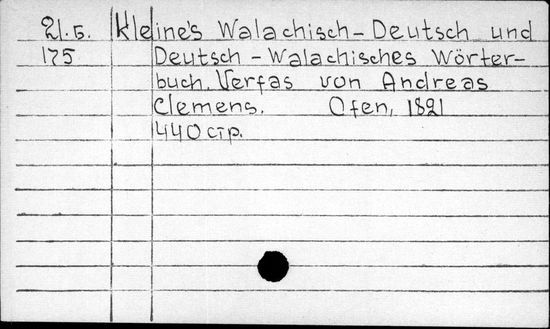 21.5. Kleine's Walachisch-Deutsch und
175 Deutsch-Walachisches Wörter-
buch. Verfas von Andreas
Clemens. Ofen, 1821
440 стр.